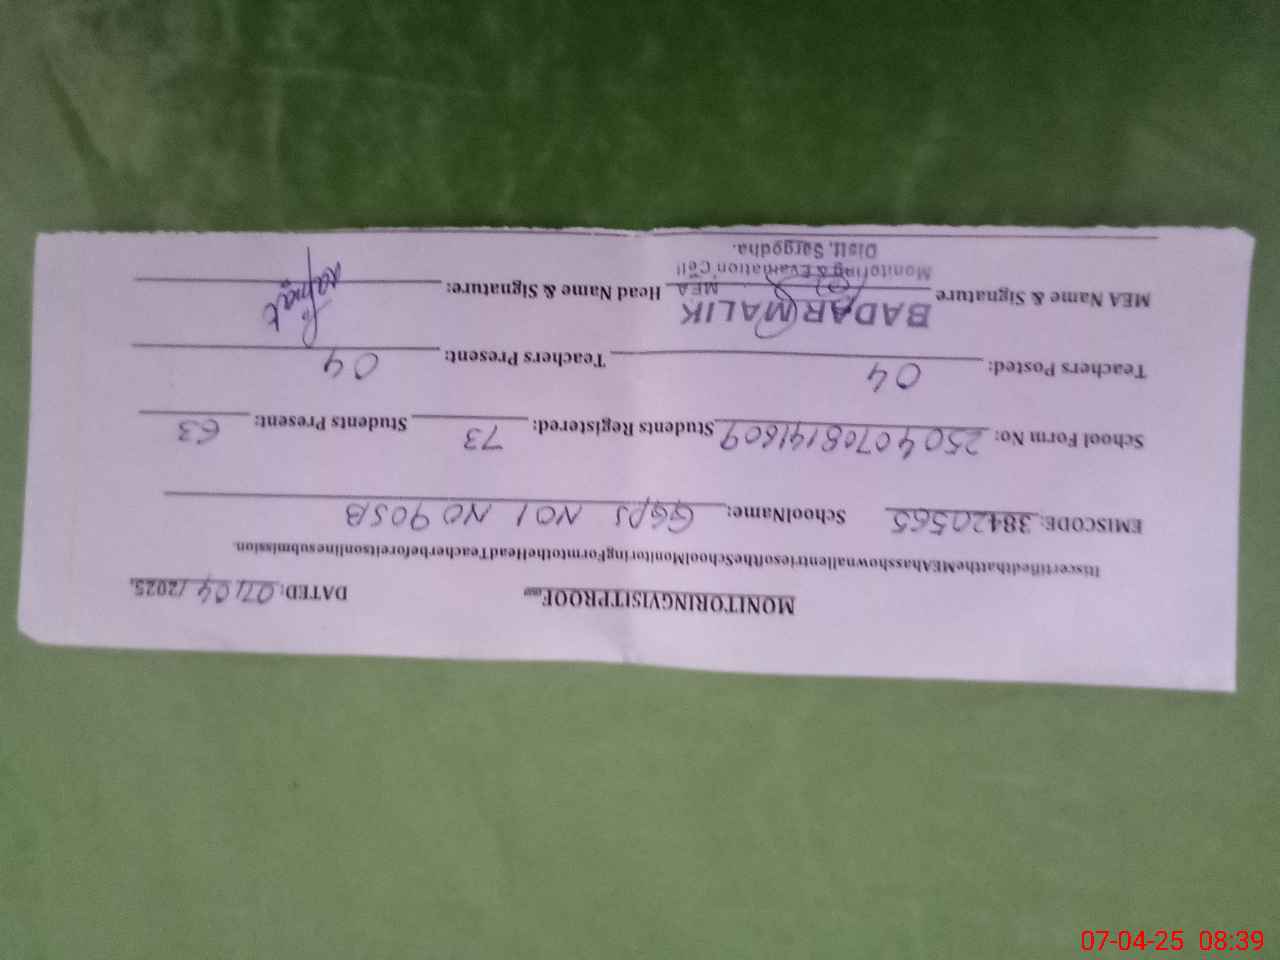 MONITORINGVISITPROOF DATED: 07/04/2025.
ItiscertifiedthattheMEAhasshownallentriesoftheSchoolMonitoringFormtotheHeadTeacherbeforeitsonlinesubmission.
EMISCODE: 38420565 SchoolName: GGPS NO1 NO 90SB
School Form No: 25040708141809 Students Registered: 73 Students Present: 63
Teachers Posted: 04 Teachers Present: 04
BADAR MALIK
MEA Name & Signature MEA Head Name & Signature:
Monitoring & Evaluation Cell
Distt. Sargodha.
07-04-25 08:39